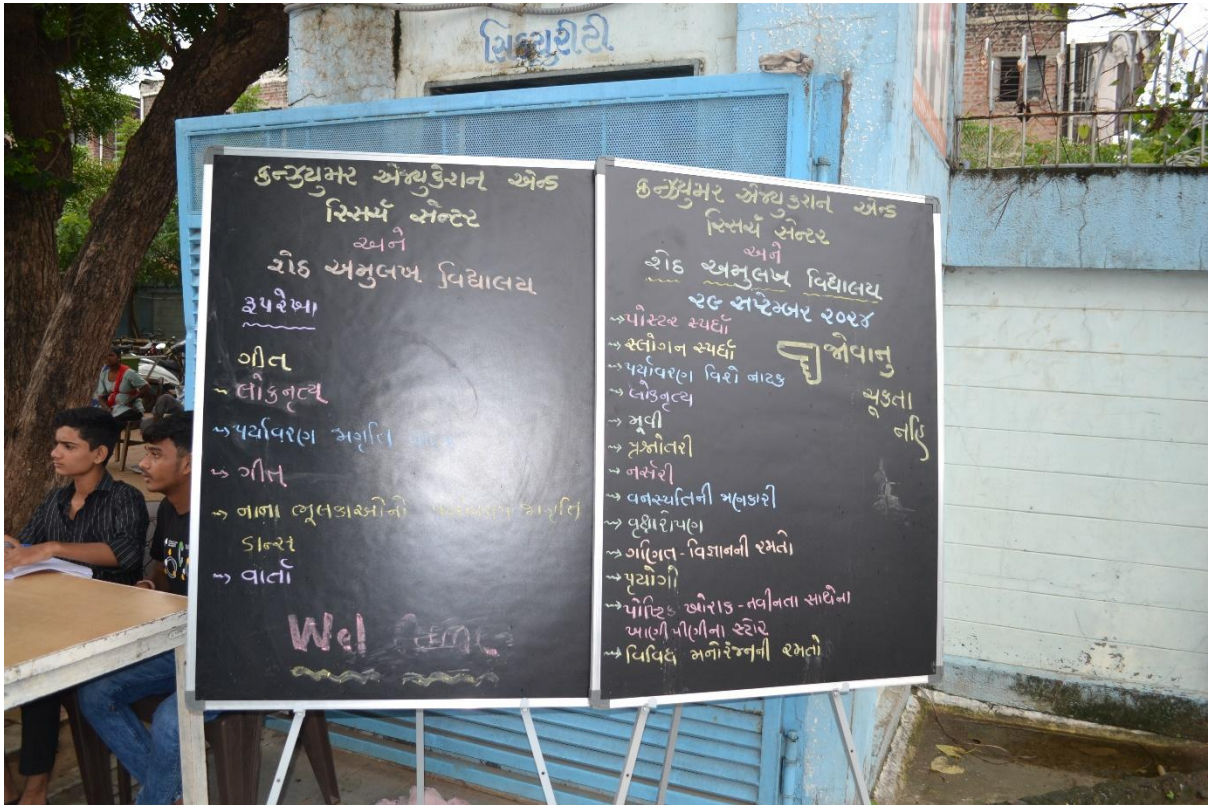 સિક્યુરીટી
કન્ઝ્યુમર એજ્યુકેશન એન્ડ
રિસર્ચ સેન્ટર
અને
શેઠ અમુલખ વિદ્યાલય
રૂપરેખા
ગીત
→ લોકનૃત્ય
→ પર્યાવરણ જાગૃતિ
→ ગીત
→ નાના ભૂલકાઓનો જાગૃતિ
ડાન્સ
→ વાર્તા
Wel come
કન્ઝ્યુમર એજ્યુકેશન એન્ડ
રિસર્ચ સેન્ટર
અને
શેઠ અમુલખ વિદ્યાલય
૨૯ સપ્ટેમ્બર ૨૦૨૪
→ પોસ્ટર સ્પર્ધા
→ સ્લોગન સ્પર્ધા
→ પર્યાવરણ વિશે નાટક
→ લોકનૃત્ય
→ મૂવી
→ પ્રશ્નોતરી
→ નર્સરી
→ વનસ્પતિની જાણકારી
→ વૃક્ષારોપણ
→ ગણિત - વિજ્ઞાનની રમતો
→ પ્રયોગો
→ પોષ્ટિક ખોરાક - નવીનતા સાથેના
ખાણીપીણીના સ્ટોર
→ વિવિધ મનોરંજનની રમતો
જોવાનુ
ચૂકતા
નહિ